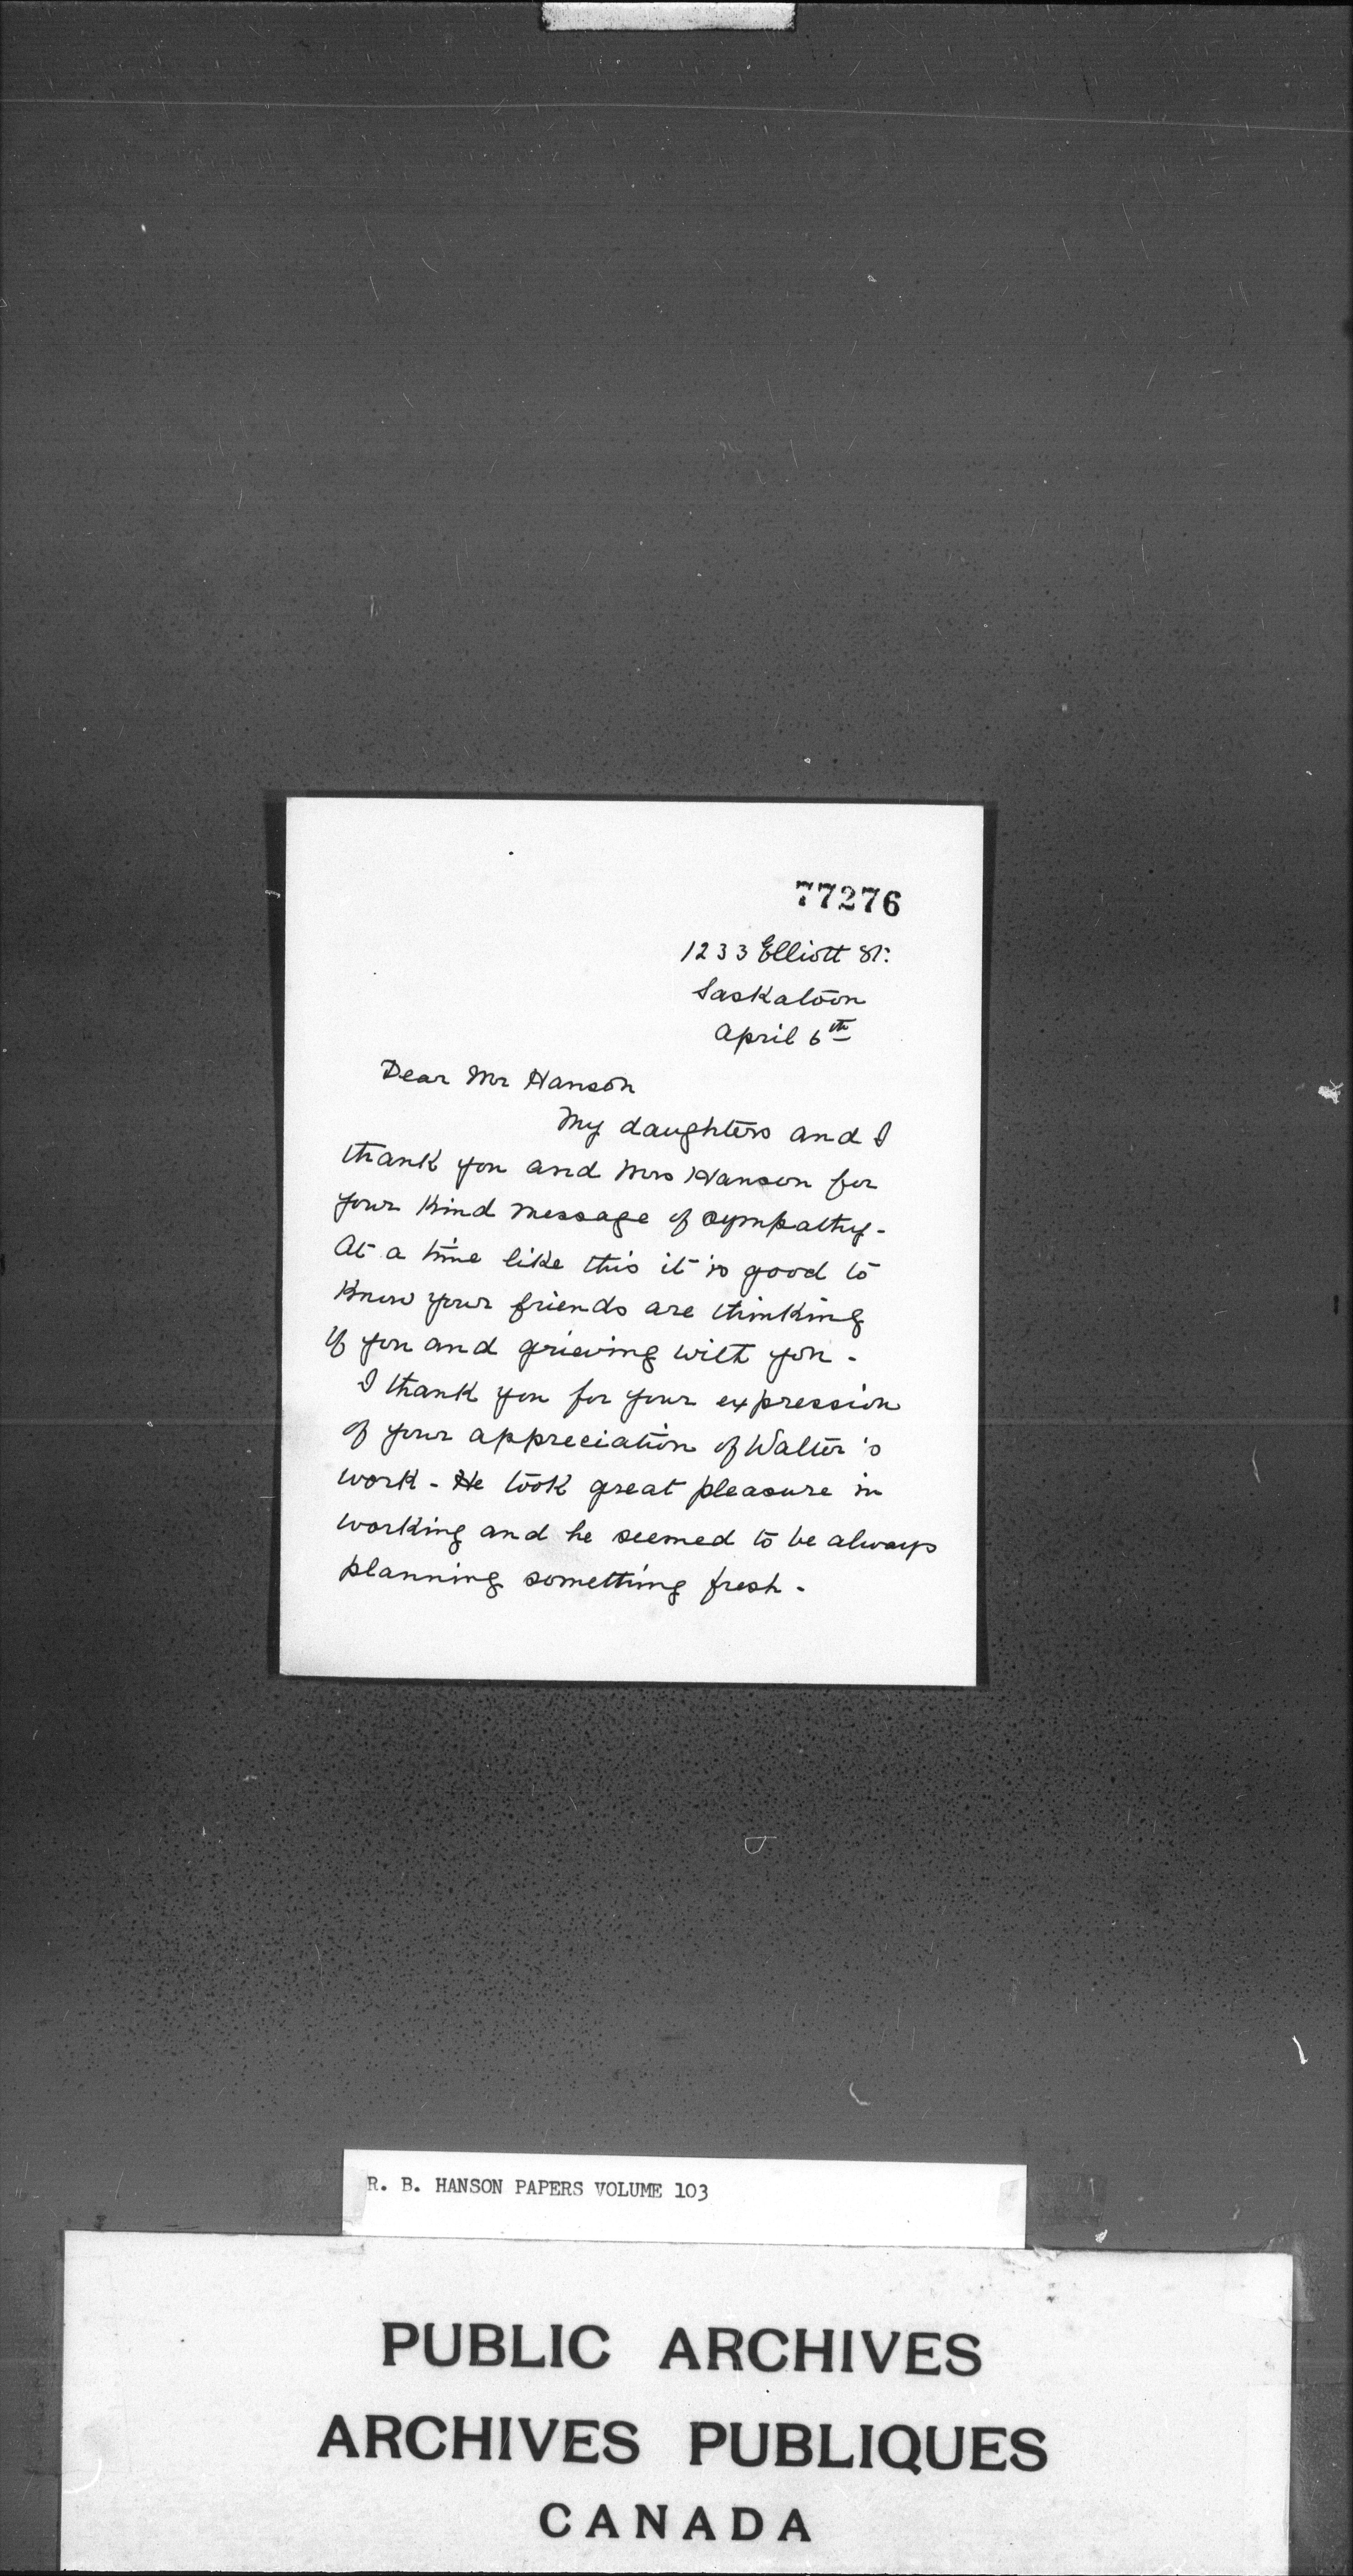 77276
1233 Elliott St:
Saskatoon
April 6th
Dear Mr Hanson
My daughters and I
thank you and Mrs Hanson for
your kind message of sympathy -
At a time like this it is good to
know your friends are thinking
of you and grieving with you -
I thank you for your expression
of your appreciation of Walter's
work - He took great pleasure in
working and he seemed to be always
planning something fresh -
R. B. HANSON PAPERS VOLUME 103
PUBLIC ARCHIVES
ARCHIVES PUBLIQUES
CANADA